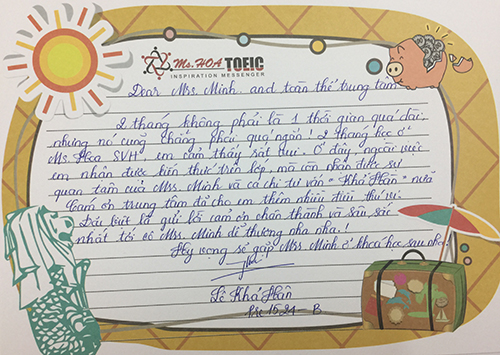 Ms.HOA TOEIC
INSPIRATION MESSENGER
Dear Mrs. Minh and toàn thể trung tâm
2 tháng không phải là 1 thời gian quá dài,
nhưng nó cũng chẳng phải quá ngắn! 2 tháng học ở
Ms. Hoa SVH, em cảm thấy rất vui. Ở đây, ngoài việc
em nhận được kiến thức trên lớp, mà còn nhận được sự
quan tâm của Mrs. Minh và cả chị tư vấn "Khả Hân" nữa
Cảm ơn trung tâm đã cho em thêm nhiều điều thú vị.
Đặc biệt là gửi lời cảm ơn chân thành và sâu sắc
nhất tới cô Mrs. Minh dễ thương nha nha!
Hy vọng sẽ gặp Mrs Minh ở khóa học sau nha
Lê Khả Hân
Pre 15.24 - B